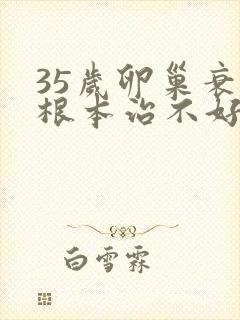 35岁卵巢衰
根本治不好
白雪霖